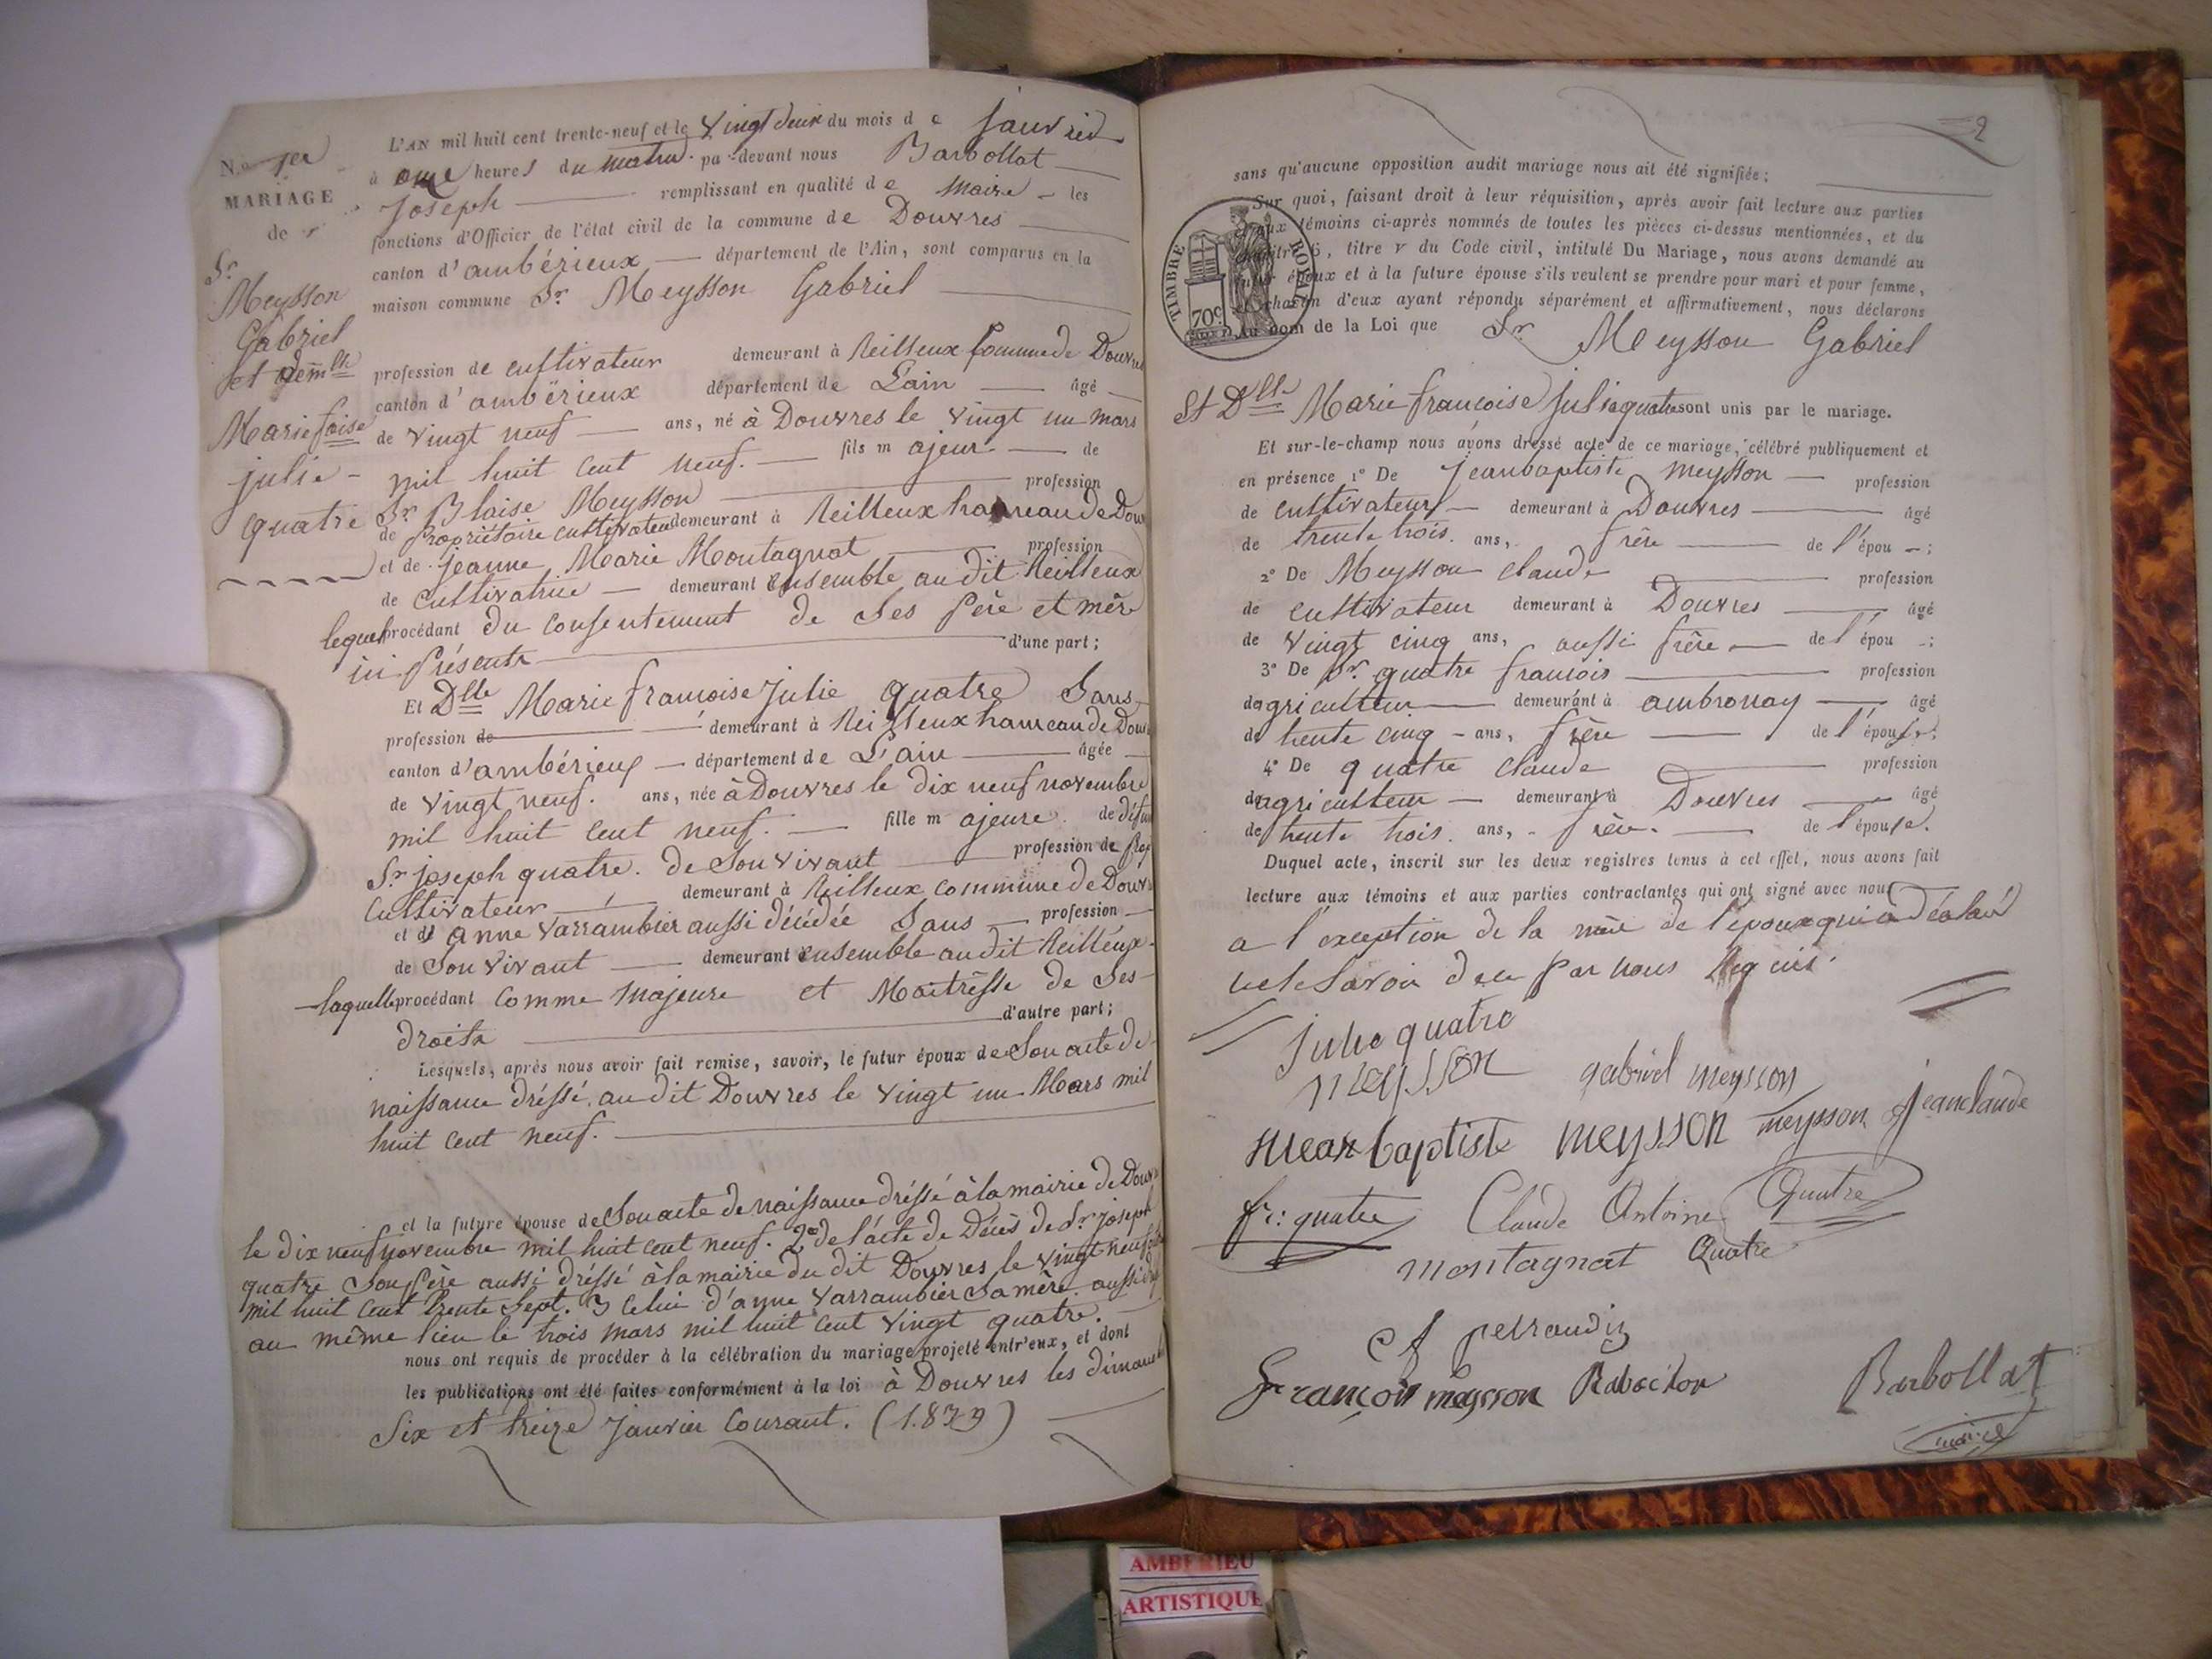 N.o 1er
MARIAGE
de
Sr
Meysson
Gabriel
et demlle
Marie foise
julie -
quatre
L'AN mil huit cent trente-neuf et le Vingt deux du mois de janvier
à onze heures du matin par-devant nous Barbollat
Joseph remplissant en qualité de Maire les
fonctions d'Officier de l'état civil de la commune de Douvres
canton d'ambérieux département de l'Ain, sont comparus en la
maison commune Sr Meysson Gabriel
profession de cultivateur demeurant à Reilleux Commune de Douvres
canton d'ambérieux département de Lain âgé
de vingt neuf ans, né à Douvres le vingt un mars
mil huit cent neuf. fils majeur de
Sr Blaise Meysson profession
de Propriétaire cultivateur demeurant à Reilleux hameau de Dou
et de jeanne Marie Montagnat profession
de Cultivatrice demeurant ensemble au dit Reilleux
lequel procédant du consentement de ses Père et mère
ici Présents d'une part;
Et Dlle Marie francoise Julie quatre Sans
profession de demeurant à Reilleux hameau de Dou
canton d'ambérieux département de L'ain âgée
de vingt neuf. ans, née à Douvres le dix neuf novembre
mil huit cent neuf. fille majeure. de défun
Sr joseph quatre. de Son vivant profession de Prop
Cultivateur demeurant à Reilleux commune de Douv
et de anne Varrambier aussi décédée Sans profession
de Son Vivant demeurant ensemble au dit Reilleux
laquelle procédant comme majeure et Maitresse de Ses
droits d'autre part;
Lesquels, après nous avoir fait remise, savoir, le futur époux de Son acte de
naissance dréssé au dit Douvres le vingt un Mars mil
huit cent neuf.
et la future épouse de Son acte de naissance dréssé à la mairie de Douv
le dix neuf novembre mil huit cent neuf. 2° de l'acte de Décès de Sr joseph
quatre Son Père aussi dréssé à la mairie du dit Douvres le vingt neuf
mil huit cent trente Sept. 3 celui d'anne Varrambier Sa mère. aussi
au même lieu le trois mars mil huit cent vingt quatre.
nous ont requis de procéder à la célébration du mariage projeté entr'eux, et dont
les publications ont été faites conformément à la loi à Douvres les dimanc
Six et treize Janvier Courant. (1.839)
2
sans qu'aucune opposition audit mariage nous ait été signifiée;
Sur quoi, faisant droit à leur réquisition, après avoir fait lecture aux parties
aux témoins ci-après nommés de toutes les pièces ci-dessus mentionnées, et du
6, titre v du Code civil, intitulé Du Mariage, nous avons demandé au
époux et à la future épouse s'ils veulent se prendre pour mari et pour femme,
chacun d'eux ayant répondu séparément et affirmativement, nous déclarons
au nom de la Loi que Sr Meysson Gabriel
TIMBRE ROYAL
70c
Et Dlle Marie francoise Julie quatre sont unis par le mariage.
Et sur-le-champ nous avons dressé acte de ce mariage, célébré publiquement et
en présence 1° De jean baptiste meysson profession
de cultivateur demeurant à Douvres âgé
de trente trois. ans, frère de l'épou ;
2° De Meysson claude profession
de cultivateur demeurant à Douvres âgé
de vingt cinq ans, aussi frère de l'épou ;
3° De Sr. quatre francois profession
d'agriculteur demeurant à ambronay âgé
de trente cinq ans, frère de l'épouse;
4° De quatre claude profession
d'agriculteur demeurant à Douvres âgé
de trente trois. ans, frère. de l'épouse.
Duquel acte, inscrit sur les deux registres tenus à cet effet, nous avons fait
lecture aux témoins et aux parties contractantes qui ont signé avec nous
a l'exception de la mère de l'époux qui a déclaré
ne le Savoir de ce Par nous Requis.
Julie quatre
meysson gabriel meysson
jean baptiste meysson meysson jean claude
fr: quatre Claude Antoine Quatre
montagnat Quatre
perraudin
François meysson Barbollat
maire
AMBERIEU
ARTISTIQUE